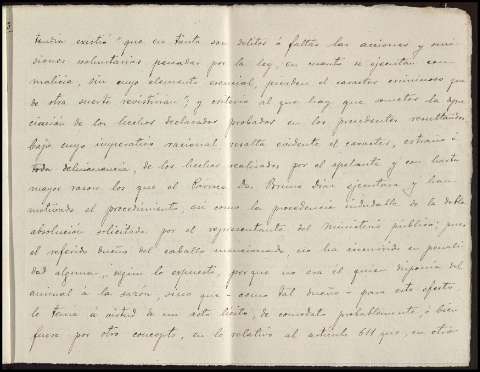 tendía existió "que en tanto son delitos ó faltas las acciones y omi-
siones voluntarias penadas por la ley, en cuanto se ejecutan con
malicia, sin cuyo elemento esencial, pierden el carácter criminoso que
de otra suerte revistirian", y criterio al que hay que someter la apre
ciación de los hechos declarados probados en los precedentes resultandos
bajo cuyo imperativo racional resalta evidente el caracter, extraño á
toda delincuencia, de los hechos realizados por el apelante y con harta
mayor razon los que al Dn. Bruno Diaz ejecutara y han
motivado el procedimiento, así como la procedencia indudable de la doble
absolución solicitada por el representante del ministerio público: pues
el referido dueño del caballo mencionado, no ha incurrido en penali
dad alguna, según lo expuesto, porque no era él quien disponía del
animal á la sazón, sino que - como tal dueño - para este efecto,
le tenia a virtud de un acto lícito, de comodato probablemente, ó bien
fuese por otro concepto, en lo relativo al artículo 611 que, en otro